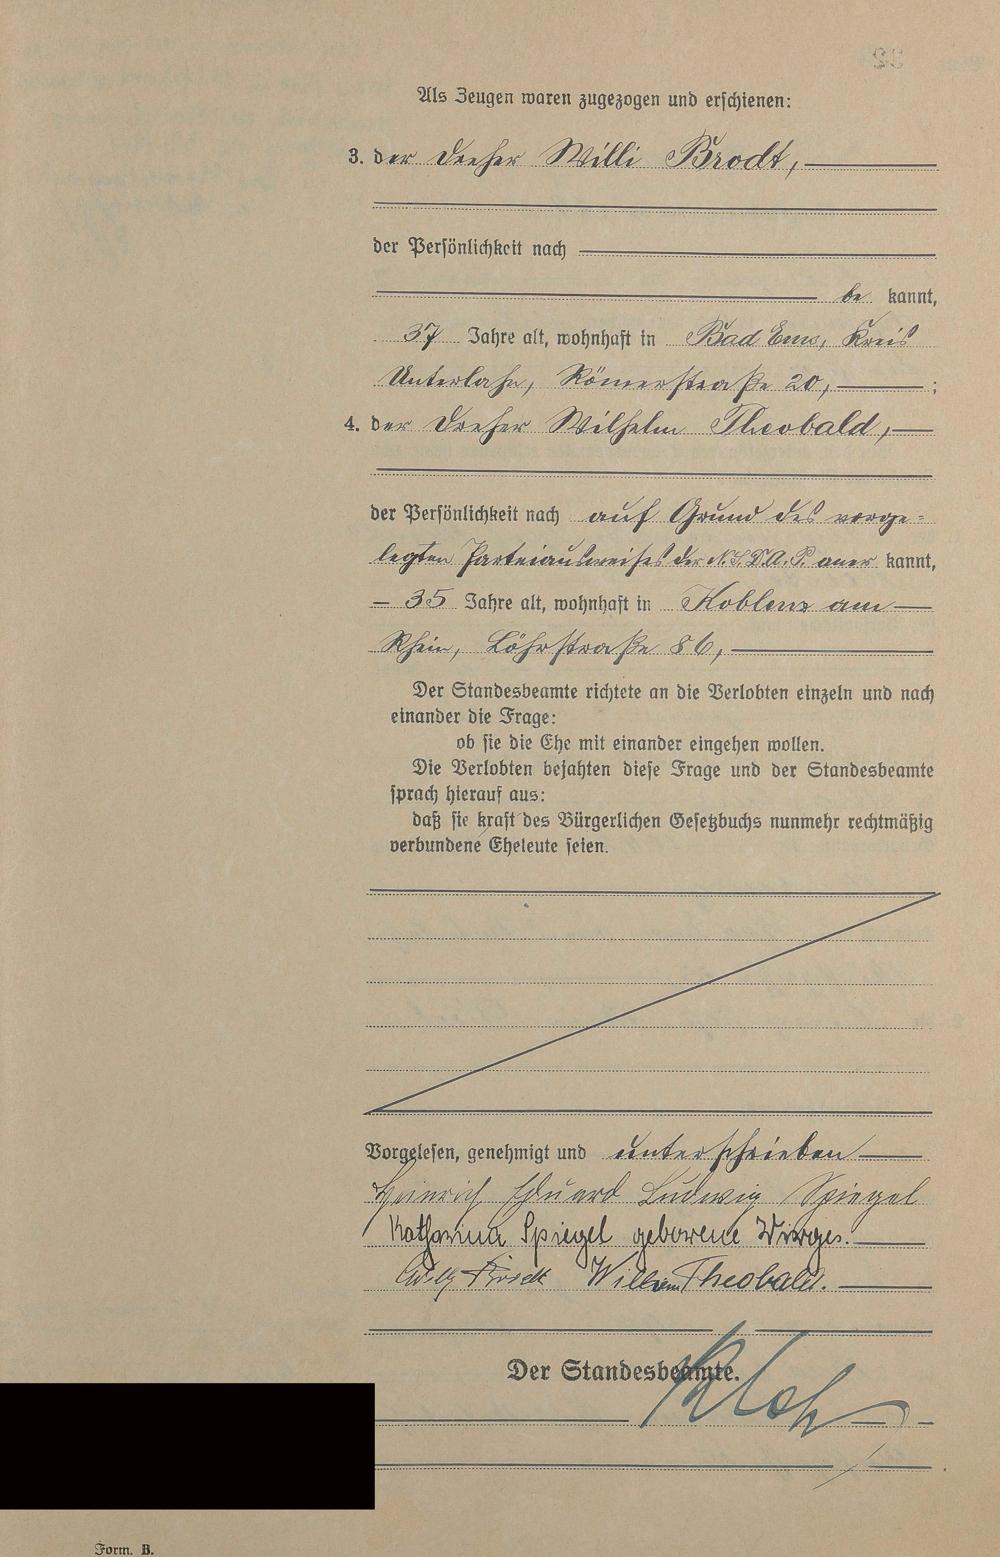 Als Zeugen waren zugezogen und erschienen:
3. der Dreher Willi Brodt,
der Persönlichkeit nach
be kannt,
37 Jahre alt, wohnhaft in Bad Ems, Kreis
Unterlahn, Römerstraße 20, ;
4. der Dreher Wilhelm Theobald,
der Persönlichkeit nach auf Grund des vorge=
legten Parteiausweises der N.S.D.A.P. aner kannt,
35 Jahre alt, wohnhaft in Koblenz am
Rhein, Löhrstraße 86,
Der Standesbeamte richtete an die Verlobten einzeln und nach
einander die Frage:
ob sie die Ehe mit einander eingehen wollen.
Die Verlobten bejahten diese Frage und der Standesbeamte
sprach hierauf aus:
daß sie kraft des Bürgerlichen Gesetzbuchs nunmehr rechtmäßig
verbundene Eheleute seien.
Vorgelesen, genehmigt und unterschrieben
Heinrich Eduard Ludwig Spiegel
Katharina Spiegel geborene Wirges.
Willy Brodt Wilhelm Theobald.
Der Standesbeamte.
Form. B.